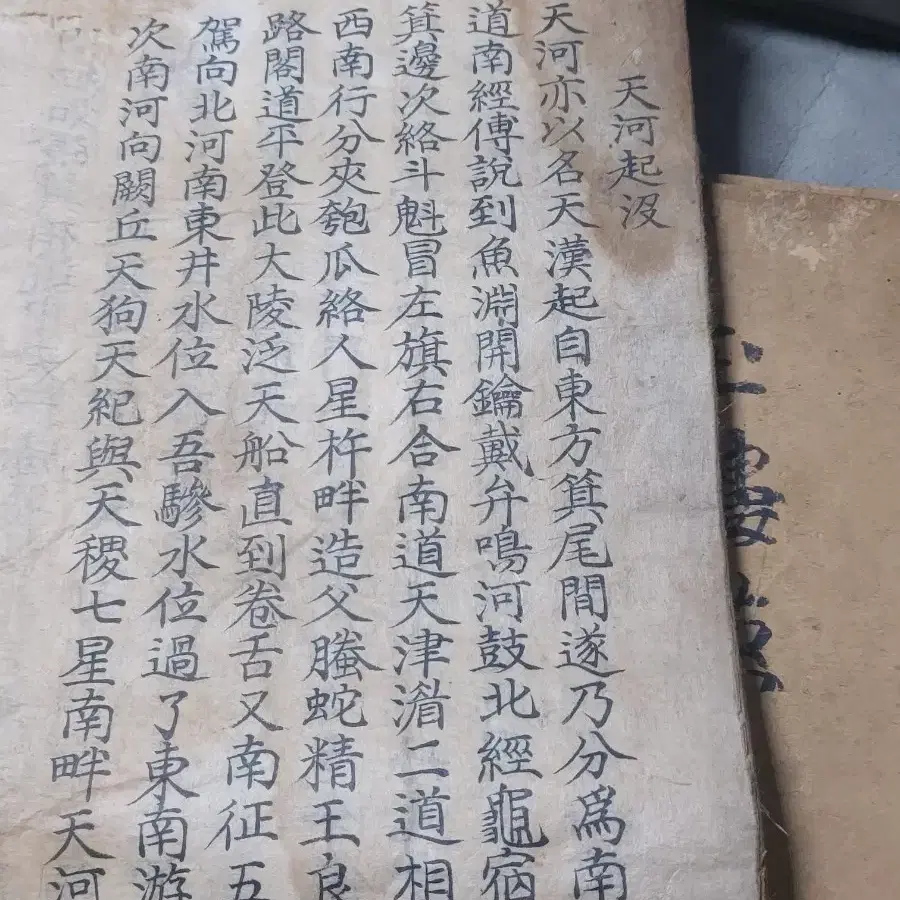 天河起没
天河亦以名天漢起自東方箕尾間遂乃分爲南
道南經傅說到魚淵開鑰戴弁鳴河鼓北經龜宿
箕邊次絡斗魁冒左旗右合南道天津湄二道相
西南行分夾匏瓜絡人星杵畔造父螣蛇精王良
路閣道平登此大陵泛天船直到卷舌又南征五
駕向北河南東井水位入吾驂水位過了東南游
次南河向闕丘天狗天紀與天稷七星南畔天河